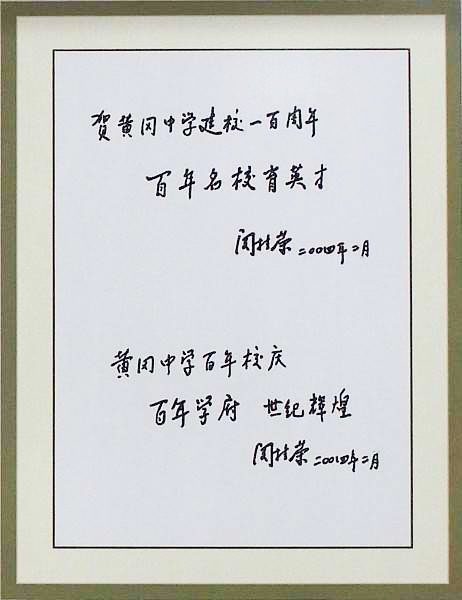 贺黄冈中学建校一百周年
百年名校育英才
闵桂荣 二00四年二月
黄冈中学百年校庆
百年学府 世纪辉煌
闵桂荣 二00四年二月